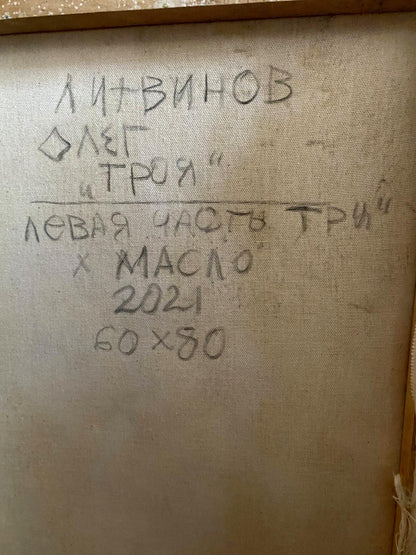 ЛИТВИНОВ
ОЛЕГ
„ТРОЯ“
ЛЕВАЯ ЧАСТЬ ТРИ“
Х МАСЛО
2021
60×80